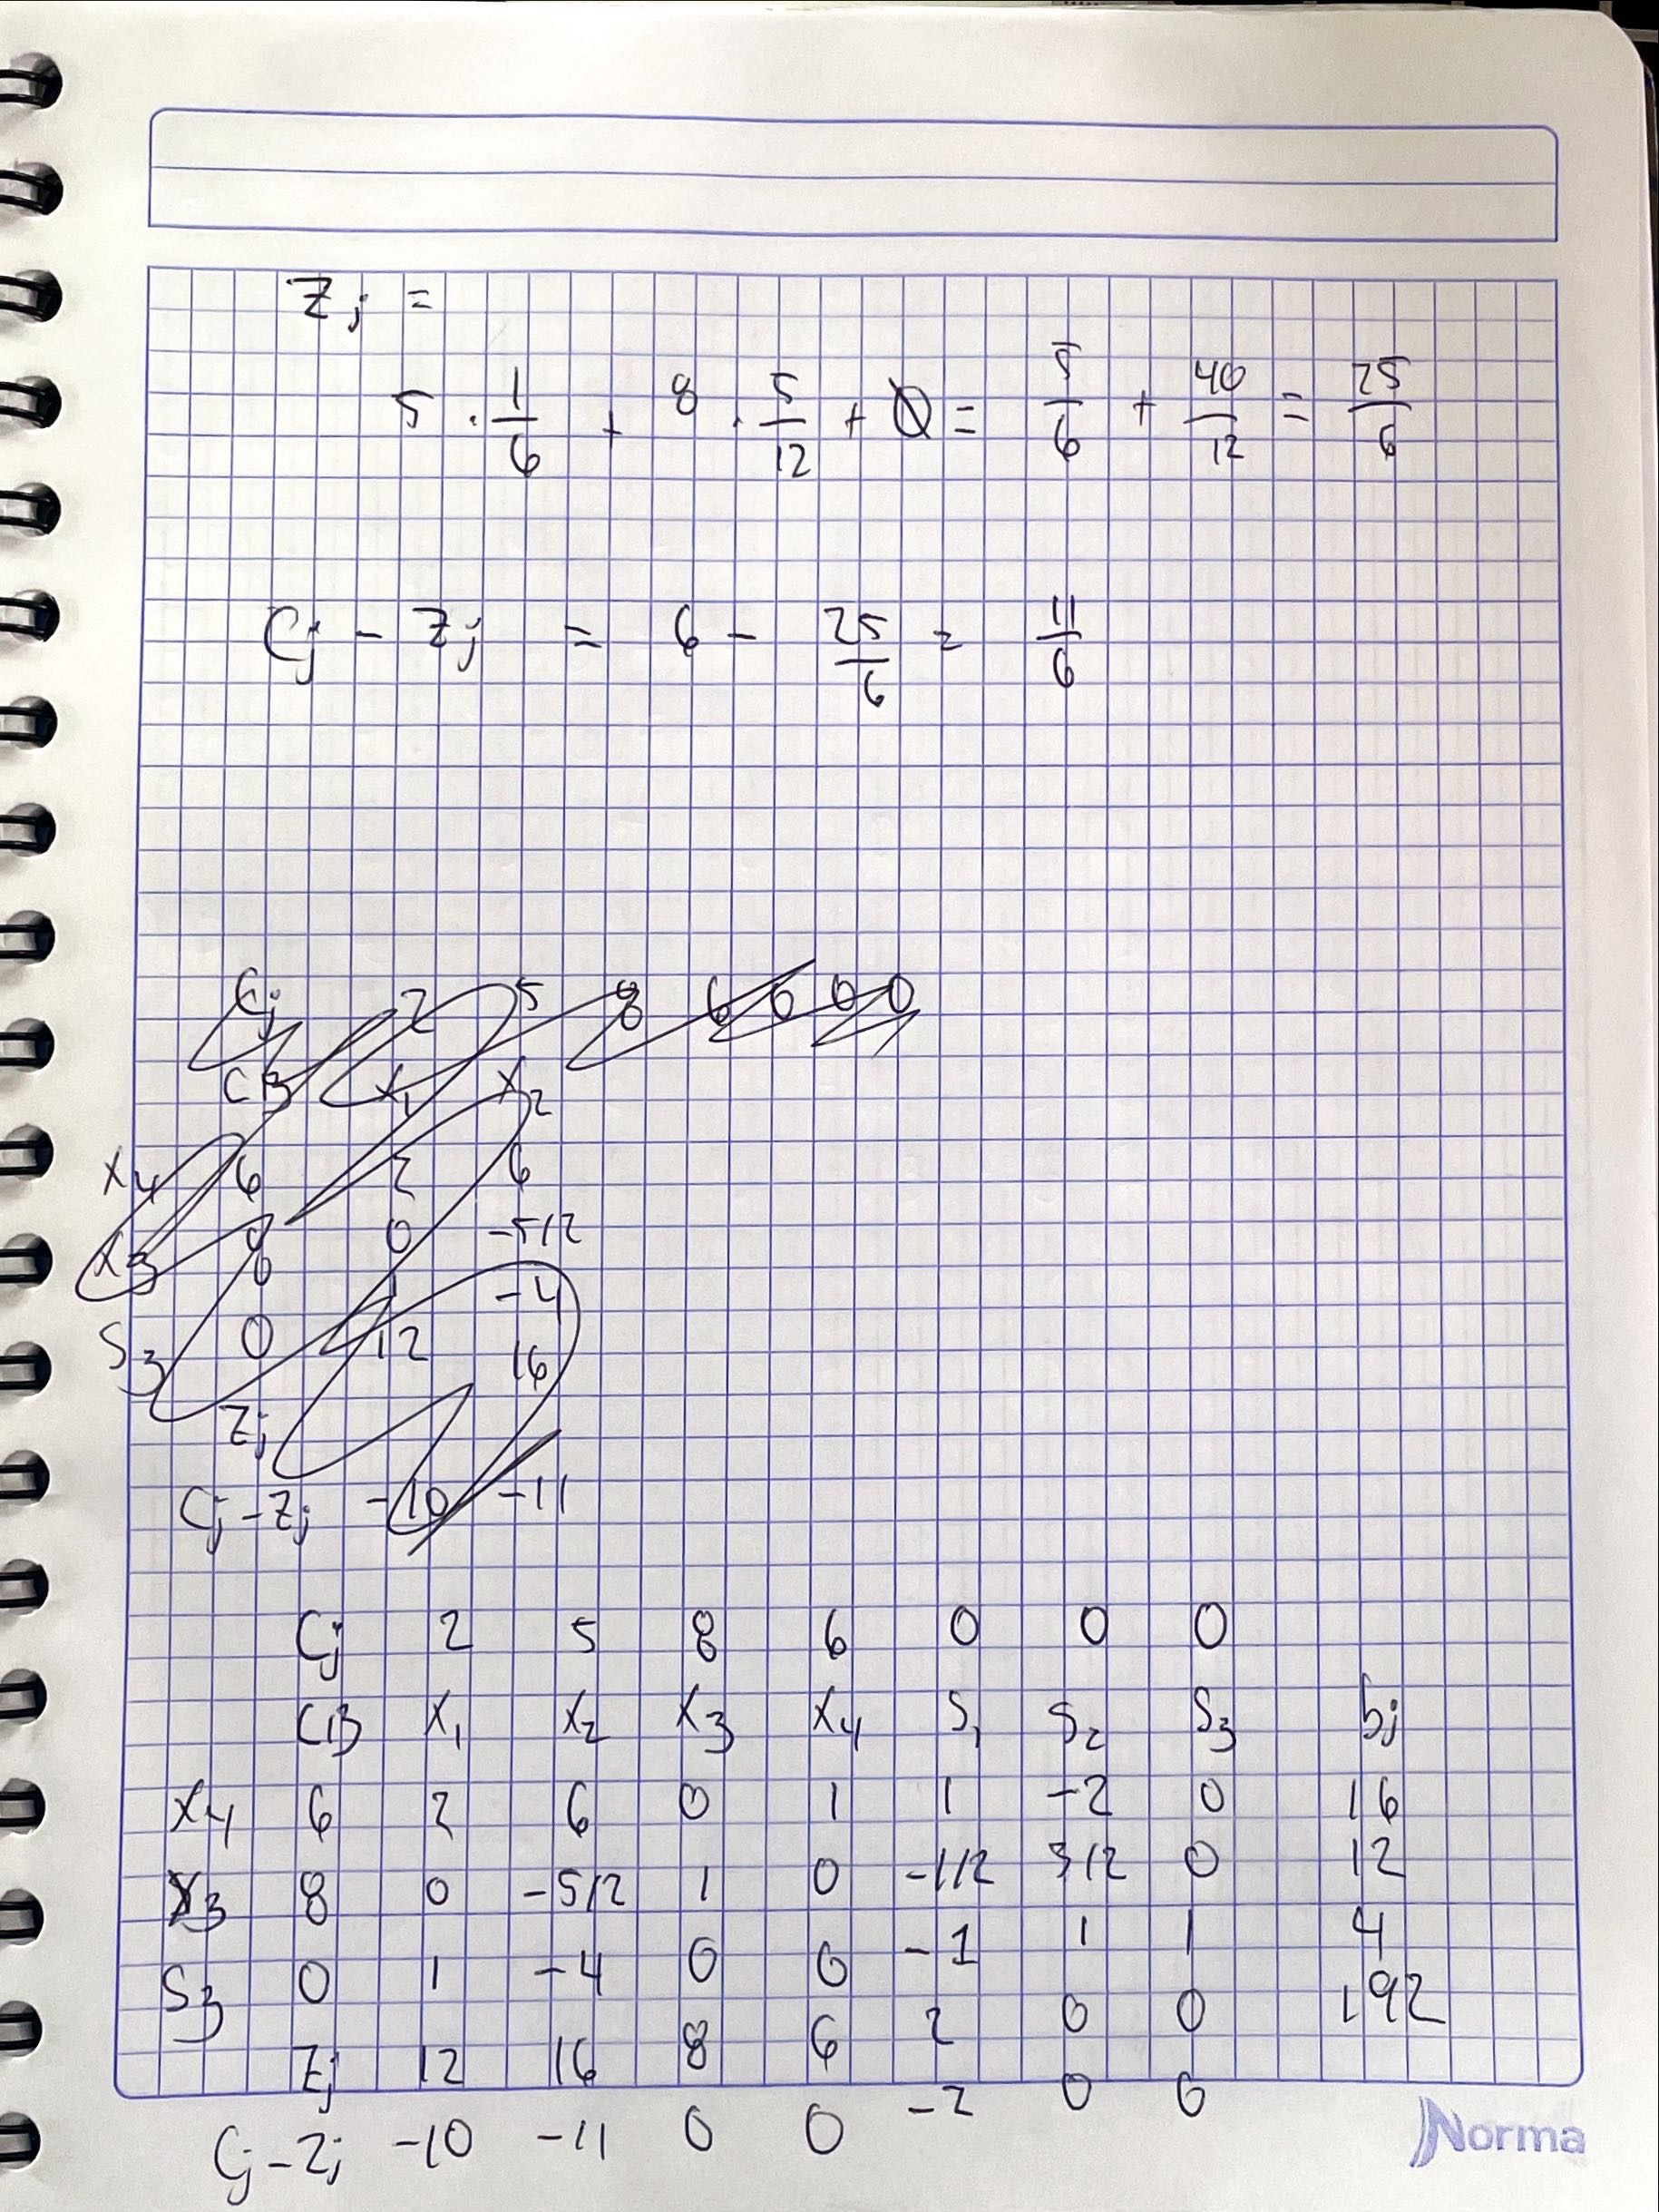 Zj =
5 · 1/6 + 8 · 5/12 + 0 = 5/6 + 40/12 = 25/6
Cj - Zj = 6 - 25/6 = 11/6
Cj 2 5 8 6 0 0 0
CB X1 X2
X4 6 2 6
X3 8 0 -5/2
S3 0 1 -4
Zj 12 16
Cj - Zj -10 -11
Cj 2 5 8 6 0 0 0
CB X1 X2 X3 X4 S1 S2 S3 bj
X4 6 2 6 0 1 1 -2 0 16
X3 8 0 -5/2 1 0 -1/2 3/2 0 12
S3 0 1 -4 0 0 -1 1 1 4
Zj 12 16 8 6 2 0 0 192
Cj - Zj -10 -11 0 0 -2 0 0
Norma